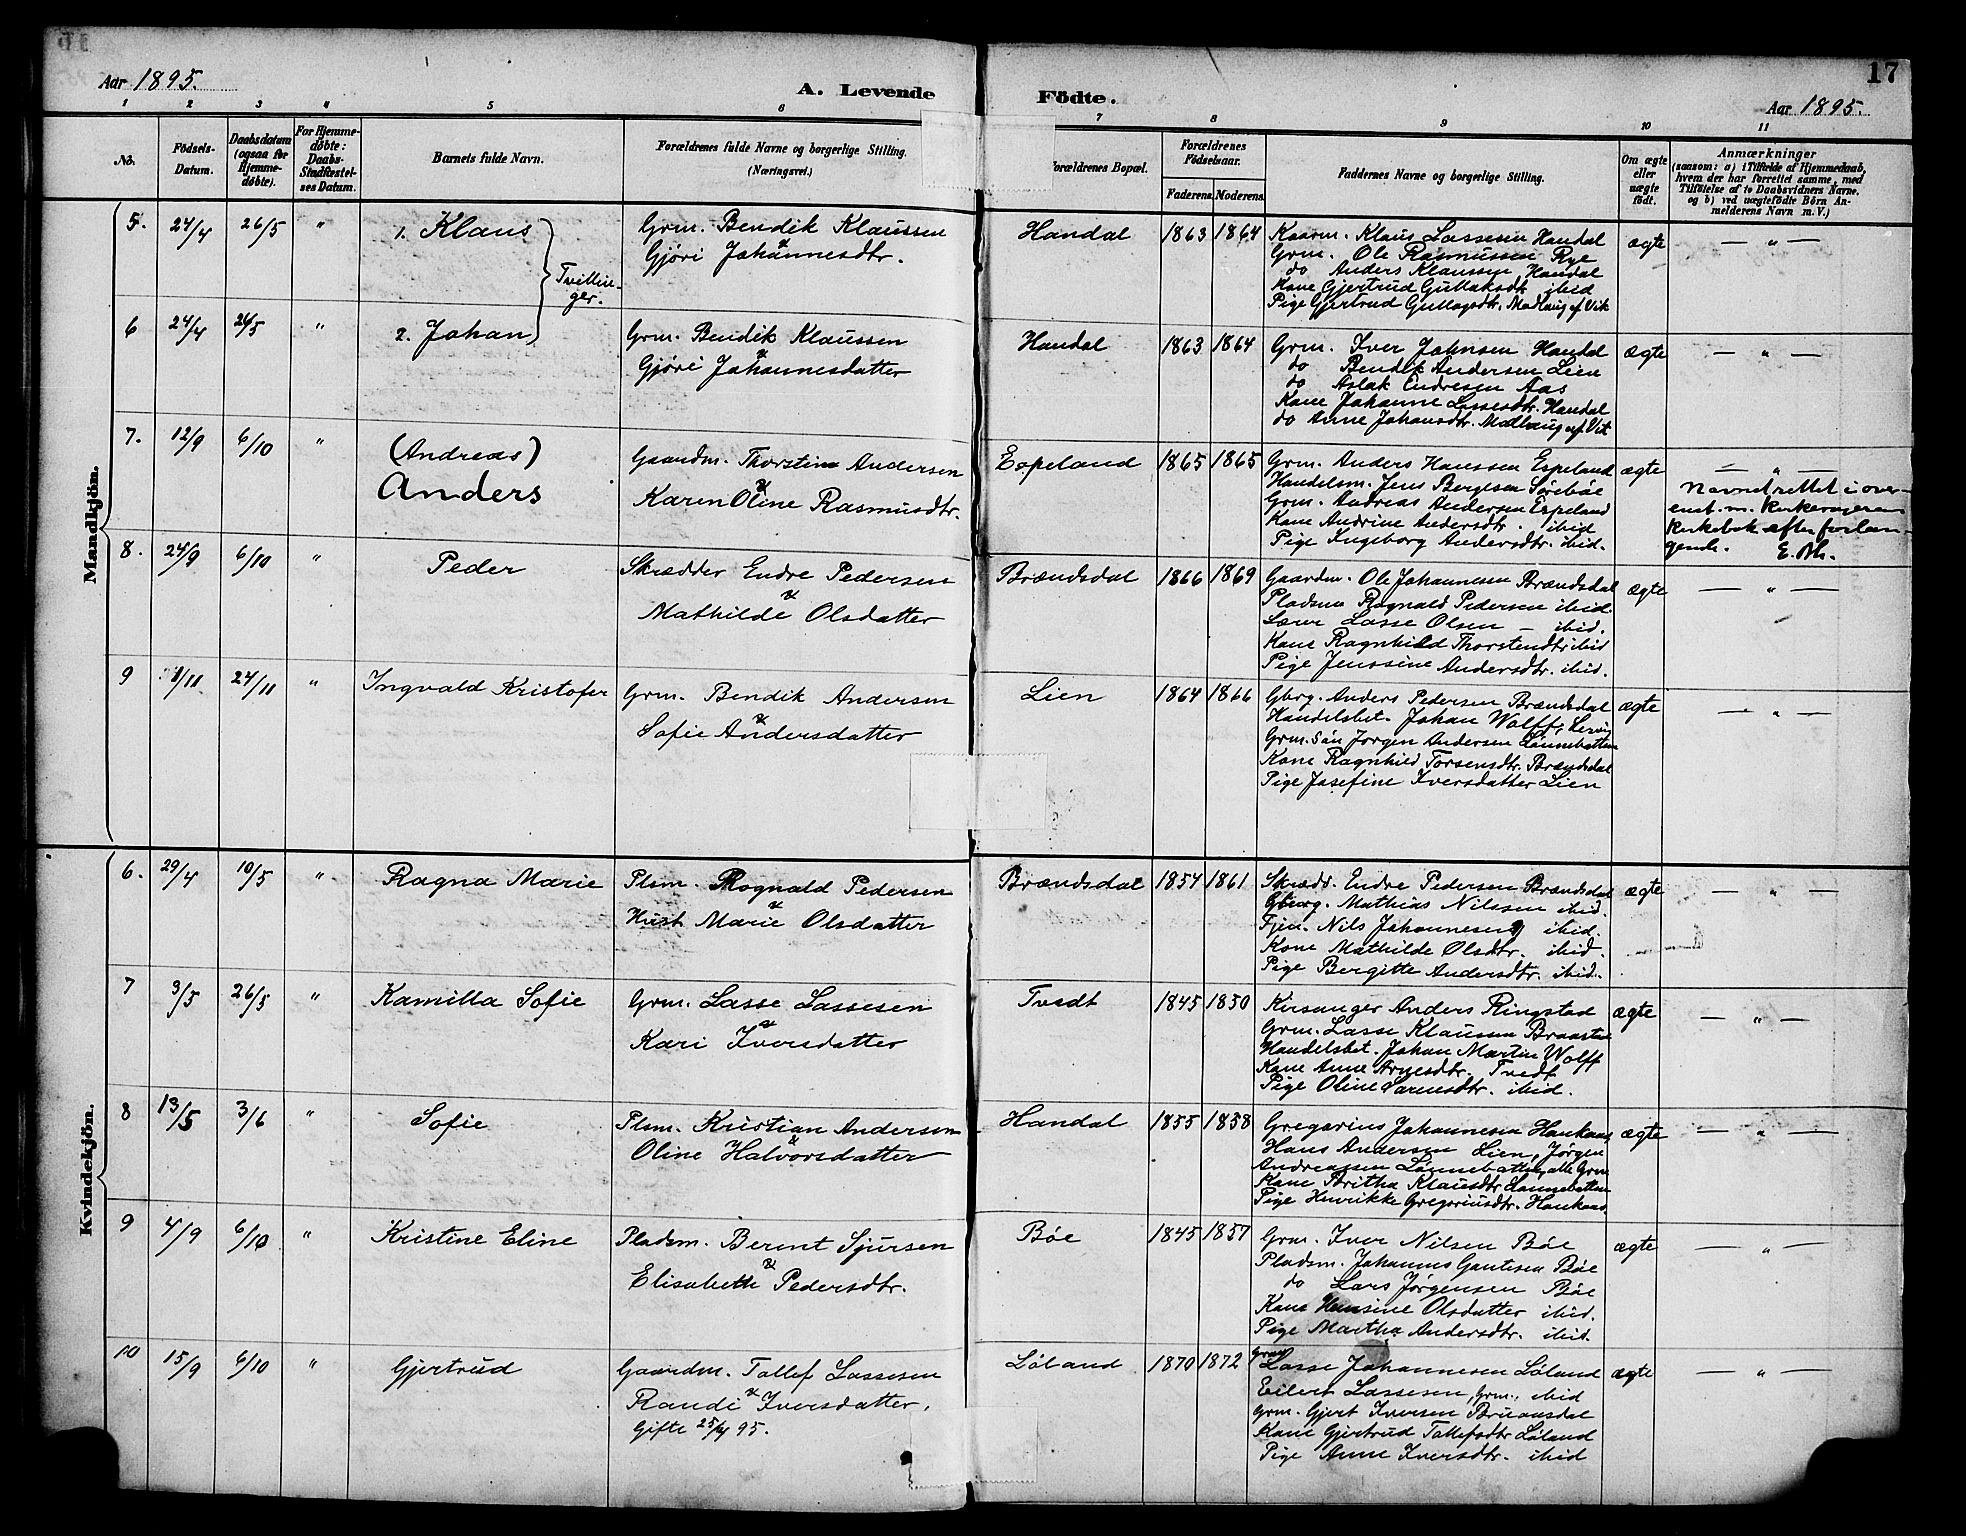 Aar 1895.
A. Levende Födte.
17
Aar 1895.
1 2 3 4 5 6 7 8 9 10 11
No.
Födsels-Datum.
Daabsdatum (ogsaa for Hjemme-døbte).
For Hjemme-døbte: Daabs-Stadfæstel-ses Datum.
Barnets fulde Navn.
Forældrenes fulde Navne og borgerlige Stilling.
(Næringsvei.)
Forældrenes Bopæl.
Forældrenes Födselsaar.
Faderens. Moderens.
Faddernes Navne og borgerlige Stilling.
Om ægte eller uægte födt.
Anmærkninger
(saasom: a) i Tilfælde af Hjemmedaab,
hvem der har forrettet samme, med
Tilföielse af to Daabsvidners Navne,
og b) ved uægtefödte Börn An-
melderens Navn m. V.)
Mandkjön.
5. 24/4 26/5 " 1. Klaus
Tvillin-
ger.
Grm. Bendik Klaussen
&
Gjøri Johannesdtr.
Handal 1863 1864
Kaarm. Klaus Lassesen Handal
Grm. Ole Rasmussen Rye
do Anders Klaussen Handal
Kone Gjertrud Gullaksdtr. ibid
Pige Gjertrud Gullagsdtr. Madlaug af Vik
ægte — " —
6 24/4 26/5 " 2. Johan
Grm. Bendik Klaussen
&
Gjøri Johannesdatter
Handal 1863 1864
Grm. Iver Johnsen Handal
do Bendik Andersen Lien
do Aslak Endresen Aas
Kone Johanne Lassesdtr. Handal
do Anne Johansdtr. Madlaug af Vik
ægte — " —
7. 12/9 6/10 " (Andreas)
Anders
Gaardm. Thorstein Andersen
&
Karen Oline Rasmusdtr.
Espeland 1865 1865
Grm. Anders Hanssen Espeland
Handelsm. Jens Bergesen Sørebøe
Grm. Andreas Andersen Espeland
Kone Andrine Andersdtr. ibid
Pige Ingeborg Andersdtr. ibid.
ægte — " —
Navnet rettet i over-
enst. m. Kirkesangerens
kirkebok efter forlan-
gende.
8. 24/9 6/10 " Peder
Skrædder Endre Pedersen
&
Mathilde Olsdatter
Brændsdal 1866 1869
Gaardm. Ole Johannesen Brændsdal
Pladsm Ragnald Pedersen ibid.
Lasse Olsen — ibid.
Kone Ragnhild Thorstendtr ibid
Pige Jenssine Andersdtr. ibid.
ægte — " —
9 1/11 24/11 " Ingvald Kristofer
Grm. Bendik Andersen
&
Sofie Andersdatter
Lien 1864 1866
Gbrg. Anders Pedersen Brændsdal
Handelsbet. Johan Wolff,
Grm. Søn Jørgen Andersen Lønnebotten
Kone Ragnhild Torsensdtr. Brændsdal
Pige Josefine Iversdatter Lien
ægte — " —
Kvindekjön.
6. 29/4 10/5 " Ragna Marie
Plsm. Rognald Pedersen
&
Hust Marie Olsdatter
Brændsdal 1854 1861
Skrædr. Endre Pedersen Brændsdal
Gbrg. Mathias Nilssen ibid.
Tjen. Nils Johannesen ibid.
Kone Mathilde Olsdtr. ibid.
Pige Bergitte Andersdtr. ibid.
ægte — " —
7 3/5 26/5 " Kamilla Sofie
Grm. Lasse Lassesen
&
Kari Iversdatter
Tvedt 1845 1850
Kirsanger Anders Ringstad
Grm. Lasse Klaussen Braastad
Handelsbet. Johan Martin Wolff
Kone Anne Arnesdtr. Tvedt
Pige Oline Larnesdtr. ibid.
ægte — " —
8 13/5 3/6 " Sofie
Plsm. Kristian Andersen
&
Oline Halvorsdatter
Handal 1855 1858
Gregorius Johannesen Haukaas
Hans Andersen Lien, Jørgen
Andreassen Lønnebotten, alle Grm
Kone Britha Klausdtr Lønnebotten
Pige Henrikke Gregoriusdtr. Haukaas
ægte — " —
9 4/9 6/10 " Kristine Eline
Pladsm. Berent Sjursen
&
Elisabeth Pedersdtr.
Bøe 1845 1857
Grm. Iver Nilsen Bøe
Pladsm. Johannes Gautesen Bøe
do Lars Jørgensen Bøe
Kone Hansine Olsdatter ibid.
Pige Martha Andersdtr. ibid.
ægte — " —
10 15/9 6/10 " Gjertrud
Gaardm. Tollef Lassesen
&
Randi Iversdatter.
Gifte 25/4 95.
Løland 1870 1872
Grm Lasse Johannesen Løland
Eilert Lassesen, Grm., ibid
Grm. Gjert Iversen
Kone Gjertrud Tollefsdtr Løland
Pige Anne Iversdtr. ibid
ægte — " —